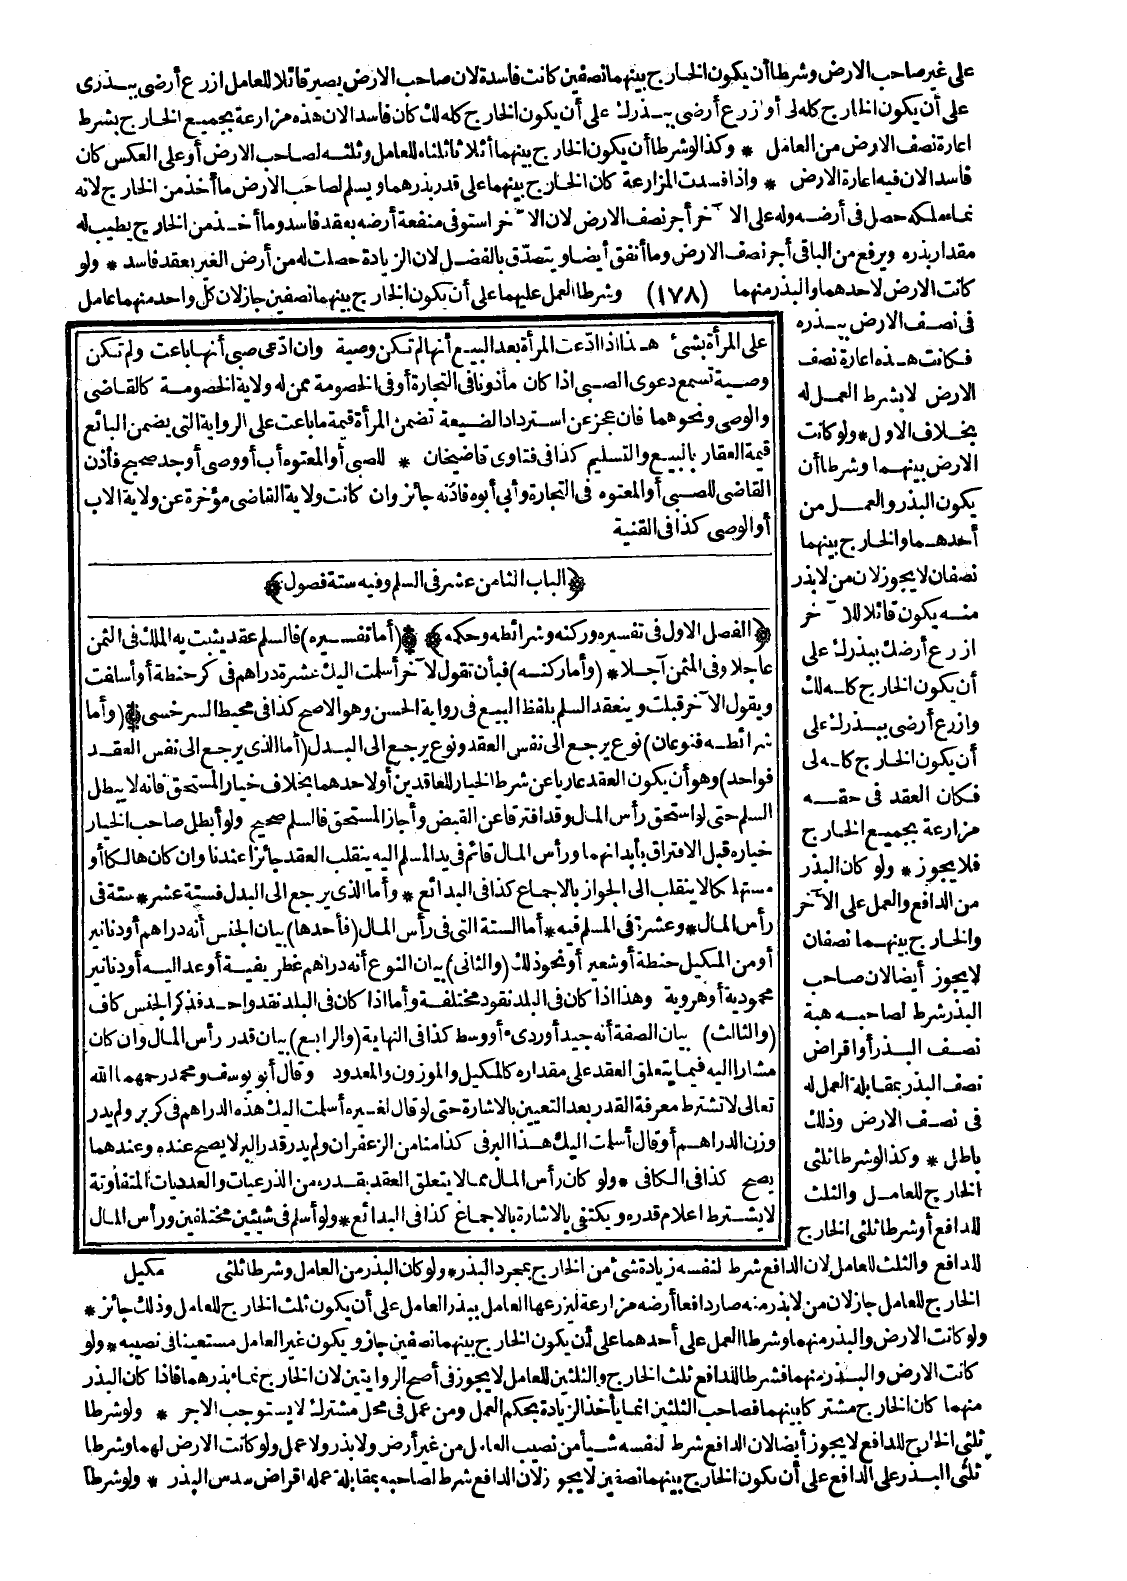 على غير صاحب الارض وشرطا أن يكون الخارج بينهما نصفين كانت فاسدة لان صاحب الارض يصير قائلا للعامل ازرع أرضى ببذرى
على أن يكون الخارج كله لى أو ازرع أرضى ببذرك على أن يكون الخارج كله لك كان فاسدا لان هذه مزارعة بجميع الخارج بشرط
اعارة نصف الارض من العامل * وكذا لو شرطا أن يكون الخارج بينهما أثلاثا ثلثاه للعامل وثلثه لصاحب الارض أو على العكس كان
فاسدا لان فيه اعارة الارض * واذا فسدت المزارعة كان الخارج بينهما على قدر بذرهما ويسلم لصاحب الارض ما أخذ من الخارج لانه
نماء ملكه حصل فى أرضه وله على الآخر أجر نصف الارض لان الآخر استوفى منفعة أرضه بعقد فاسد وما أخذ من الخارج يطيب له
مقدار بذره ويرفع من الباقى أجر نصف الارض وما أنفق أيضا ويتصدّق بالفضل لان الزيادة حصلت له من أرض الغير بعقد فاسد * ولو
كانت الارض لاحدهما والبذر منهما (١٧٨) وشرطا العمل عليهما على أن يكون الخارج بينهما نصفين جاز لان كل واحد منهما عامل
فى نصف الارض ببذره
فكانت هذه اعارة نصف
الارض لا بشرط العمل له
بخلاف الاول * ولو كانت
الارض بينهما وشرطا أن
يكون البذر والعمل من
أحدهما والخارج بينهما
نصفان لا يجوز لان من لا بذر
منه يكون قائلا للآخر
ازرع أرضك ببذرك على
أن يكون الخارج كله لك
وازرع أرضى ببذرك على
أن يكون الخارج كله لى
فكان العقد فى حقه
مزارعة بجميع الخارج
فلا يجوز * ولو كان البذر
من الدافع والعمل على الآخر
والخارج بينهما نصفان
لا يجوز أيضا لان صاحب
البذر شرط لصاحبه هبة
نصف البذر أو اقراض
نصف البذر بمقابلة العمل له
فى نصف الارض وذلك
باطل * وكذا لو شرطا ثلثى
الخارج للعامل والثلث
للدافع أو شرطا ثلثى الخارج
على المرأة بشئ هذا اذا ادّعت المرأة بعد البيع أنها لم تكن وصية وان ادّعى صبى أنها باعت ولم تكن
وصية تسمع دعوى الصبى اذا كان مأذونا فى التجارة أو فى الخصومة ممن له ولاية الخصومة كالقاضى
والوصى ونحوهما فان عجز عن استرداد الضيعة تضمن المرأة قيمة ما باعت على الرواية التى يضمن البائع
قيمة العقار بالبيع والتسليم كذا فى فتاوى قاضيخان * للصبى أو المعتوه أب أو وصى أو جد صحيح فأذن
القاضى للصبى أو المعتوه فى التجارة وأبى أبوه فاذنه جائز وان كانت ولاية القاضى مؤخرة عن ولاية الاب
أو الوصى كذا فى القنية
﴿الباب الثامن عشر فى السلم وفيه ستة فصول﴾
﴿الفصل الاول فى تفسيره وركنه وشرائطه وحكمه﴾ * (أما تفسيره) فالسلم عقد يثبت به الملك فى الثمن
عاجلا وفى المثمن آجلا * (وأما ركنه) فبأن تقول لآخر أسلمت اليك عشرة دراهم فى كر حنطة أو أسلفت
ويقول الآخر قبلت وينعقد السلم بلفظ البيع فى رواية الحسن وهو الاصح كذا فى محيط السرخسى * (وأما
شرائطه فنوعان) نوع يرجع الى نفس العقد ونوع يرجع الى البدل (أما الذى يرجع الى نفس العقد
فواحد) وهو أن يكون العقد عاريا عن شرط الخيار للعاقدين أو لاحدهما بخلاف خيار المستحق فانه لا يبطل
السلم حتى لو استحق رأس المال وقد افترقا عن القبض وأجاز المستحق فالسلم صحيح ولو أبطل صاحب الخيار
خياره قبل الافتراق بأبدانهما ورأس المال قائم فى يد المسلم اليه ينقلب العقد جائزا عندنا وان كان هالكا أو
مستهلكا لا ينقلب الى الجواز بالاجماع كذا فى البدائع * وأما الذى يرجع الى البدل فستة عشر * ستة فى
رأس المال * وعشرة فى المسلم فيه * أما الستة التى فى رأس المال (فأحدها) بيان الجنس أنه دراهم أو دنانير
أو من المكيل حنطة أو شعير أو نحو ذلك (والثانى) بيان النوع أنه دراهم غطريفية أو عدالية أو دنانير
محمودية أو هروية وهذا اذا كان فى البلد نقود مختلفة وأما اذا كان فى البلد نقد واحد فذكر الجنس كاف
(والثالث) بيان الصفة أنه جيد أو ردىء أو وسط كذا فى النهاية (والرابع) بيان قدر رأس المال وان كان
مشارا اليه فيما يتعلق العقد على مقداره كالمكيل والموزون والمعدود وقال أبو يوسف ومحمد رحمهما الله
تعالى لا تشترط معرفة القدر بعد التعيين بالاشارة حتى لو قال لغيره أسلمت اليك هذه الدراهم فى كر بر ولم يدر
وزن الدراهم أو قال أسلمت اليك هذا البر فى كذا منا من الزعفران ولم يدر قدر البر لا يصح عنده وعندهما
يصح كذا فى الكافى * ولو كان رأس المال مما لا يتعلق العقد بقدره من الذرعيات والعدديات المتفاوتة
لا يشترط اعلام قدره ويكتفى بالاشارة بالاجماع كذا فى البدائع * ولو أسلم فى شيئين مختلفين ورأس المال
مكيل
للدافع والثلث للعامل لان الدافع شرط لنفسه زيادة شئ من الخارج بمجرد البذر * ولو كان البذر من العامل وشرطا ثلثى
الخارج للعامل جاز لان من لا بذر منه صار دافعا أرضه مزارعة ليزرعها العامل ببذر العامل على أن يكون ثلث الخارج للعامل وذلك جائز *
ولو كانت الارض والبذر منهما وشرطا العمل على أحدهما على أن يكون الخارج بينهما نصفين جاز ويكون غير العامل مستعينا فى نصيبه * ولو
كانت الارض والبذر منهما فشرطا للدافع ثلث الخارج والثلثين للعامل لا يجوز فى أصح الروايتين لان الخارج نماء بذرهما فاذا كان البذر
منهما كان الخارج مشتركا بينهما فصاحب الثلثين انما يأخذ الزيادة بحكم العمل ومن عمل فى محل مشترك لا يستوجب الاجر * ولو شرطا
ثلثى الخارج للدافع لا يجوز أيضا لان الدافع شرط لنفسه شيأ من نصيب العامل من غير أرض ولا بذر ولا عمل ولو كانت الارض لهما وشرطا
ثلثى البذر على الدافع على أن يكون الخارج بينهما نصفين لا يجوز لان الدافع شرط لصاحبه بمقابلة عمله اقراض سدس البذر * ولو شرطا